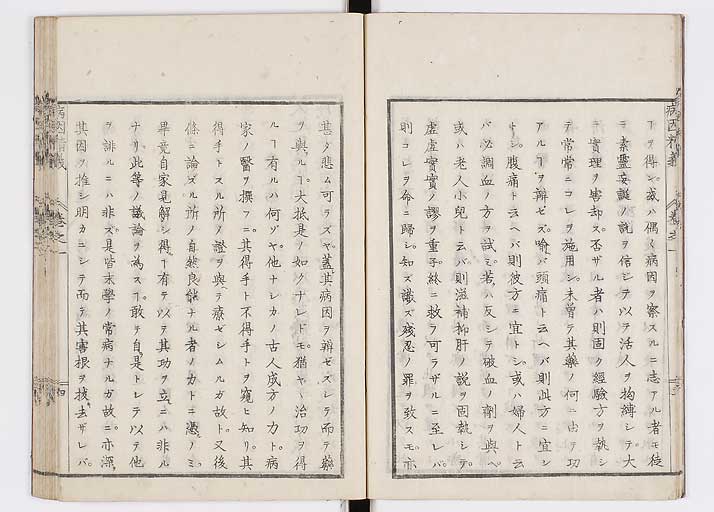 ヿヲ得ンヤ。或ハ偶〻病因ヲ察スルニ志アル者モ徒
ニ素靈妄誕ノ説ヲ信ジテ以テ活人ヲ拘縛シテ。大
ニ實理ヲ害却ス。否ザル者ハ則固ク經驗方ヲ執シ
テ常常ニコレヲ施用シ。未曽テ其藥ノ何ニ由テ功
アルヿヲ辨ゼズ。喻バ頭痛ト云ヘバ則此方ニ宜シ
トシ。腹痛ト云ヘバ則彼方ニ宜トシ。或ハ婦人ト云
バ必調血ノ方ヲ試ミ。若ハ反シテ破血ノ劑ヲ與ヘ。
或ハ老人小兒ト云バ則滋補抑肝ノ説ヲ固執シテ。
虚虚實實ノ謬ヲ重子。終ニ救フ可ラザルニ至レバ。
則コレヲ命ニ歸シ。知ズ識ズ殘忍ノ罪ヲ致スモ。亦
病因精義
卷之一
甚タ悲ム可ラズヤ蓋其病因ヲ辨ゼズシテ而テ藥
ヲ與ルヿ。大抵是ノ如クナレドモ。猶ヤヽ治功ヲ得
ルヿ有ルハ何ゾヤ。他ナシカノ古人成方ノ力ト。病
家ノ醫ヲ撰フニ。其得手ト不得手トヲ窺ヒ知リ。其
得手トスル所ノ證ヲ與テ療ゼシムルガ故ト。又後
條ニ論ズル所ノ自然良能ナル者ノ力トニ憑ノミ。
畢竟自家見解シ得ヿ有テ以テ其功ヲ立ニハ非ル
ナリ。此等ノ議論ヲ為スヿ。敢テ自是トシテ以テ他
ヲ誹ルニハ非ズ。是皆末學ノ常病ナルガ故ニ。亦深
其因ヲ推シ明カニシテ而テ其害根ヲ拔去ザレバ。
病因精義
卷之一
四